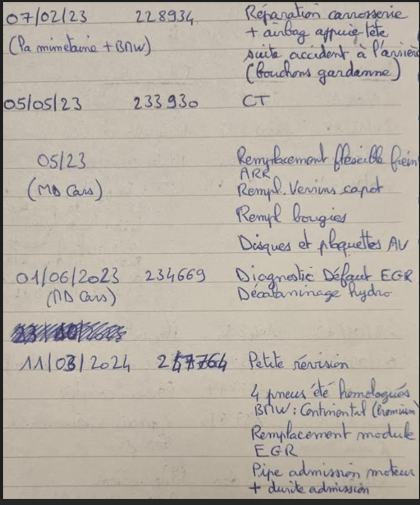 07/02/23 228934 Réparation carrosserie
(la mimetaine + BMW) + airbag appuie tête
suite accident à l'arrière
(bouchons gardanne)
05/05/23 233930 CT
05/23 Remplacement flexible frein
(MD Cars) ARR
Rempl. Verrins capot
Rempl bougies
Disques et plaquettes AV
01/06/2023 234669 Diagnostic Défaut EGR
(MD Cars) Décalaminage hydro
11/03/2024 247764 Petite révision
4 pneus été homologués
BMW : Continental
Remplacement module
EGR
Pipe admission moteur
+ durite admission